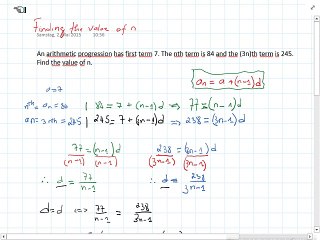 Finding the value of n
Samstag, 2. Mai 2015 10:50
An arithmetic progression has first term 7. The nth term is 84 and the (3n)th term is 245.
Find the value of n.
aₙ = a + (n-1)d
a=7
nᵗʰ aₙ = 84 | 84 = 7 + (n-1)d ⟹ 77 = (n-1)d
3nᵗʰ = 245 | 245 = 7 + (3n-1)d ⟹ 238 = (3n-1)d
77/(n-1) = (n-1)d/(n-1) 238/(3n-1) = (3n-1)d/(3n-1)
∴ d = 77/n-1 ∴ d = 238/3n-1
d=d ⟹ 77/n-1 = 238/3n-1